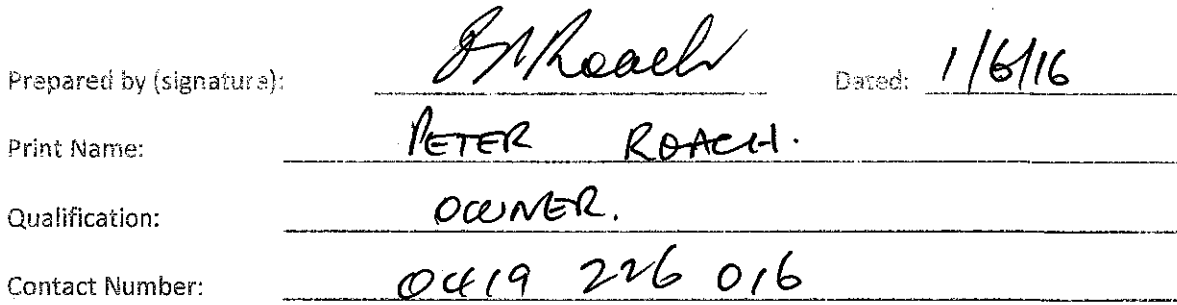 Prepared by (signature): P Roach Dated: 1/6/16
Print Name: PETER ROACH.
Qualification: OWNER.
Contact Number: 0419 226 016